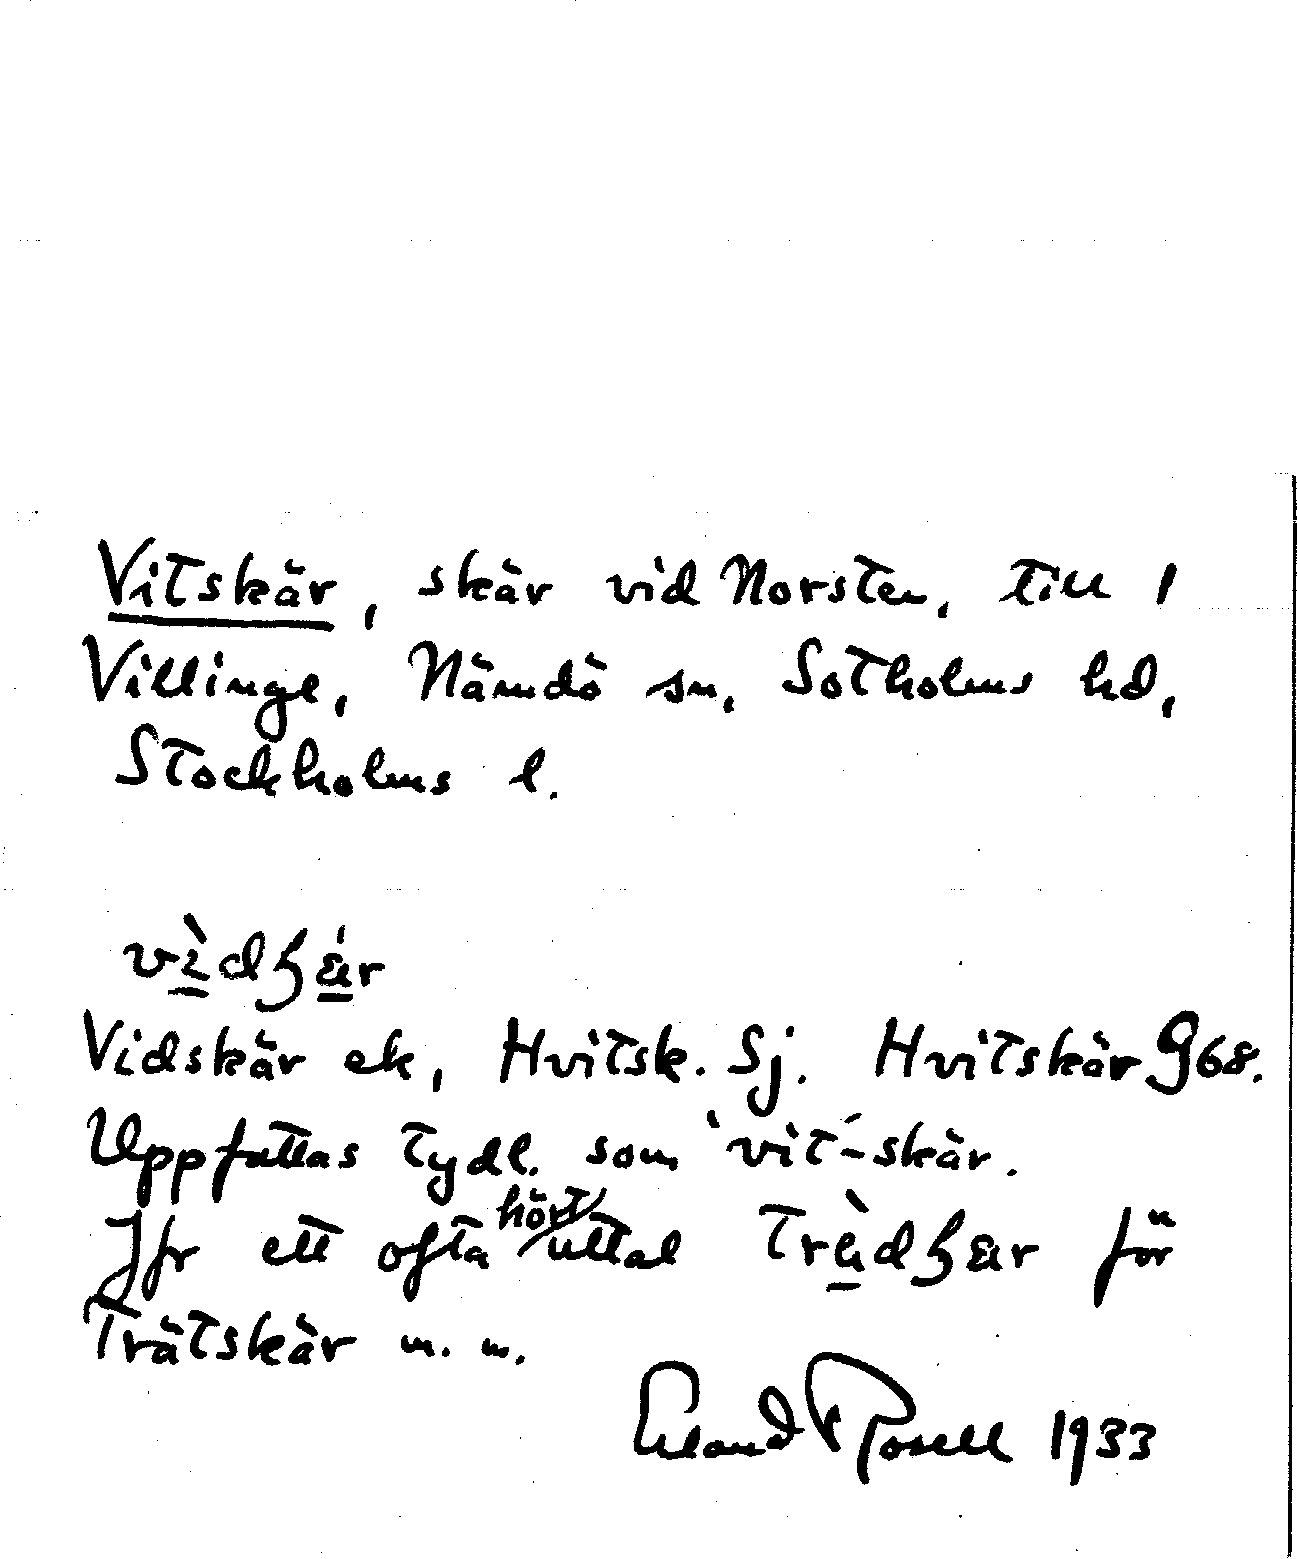 Vitskär, skär vid Norsten, till
Villinge, Nämdö sn, Sotholms hd,
Stockholms l.
vìdʒǽr
Vidskär ek, Hvitsk. Sj. Hvitskär G68.
Uppfattas tydl. som 'vit'-skär.
Jfr ett ofta hört uttal trædʒær för
Trätskär m. m.
Erland Rosell 1933